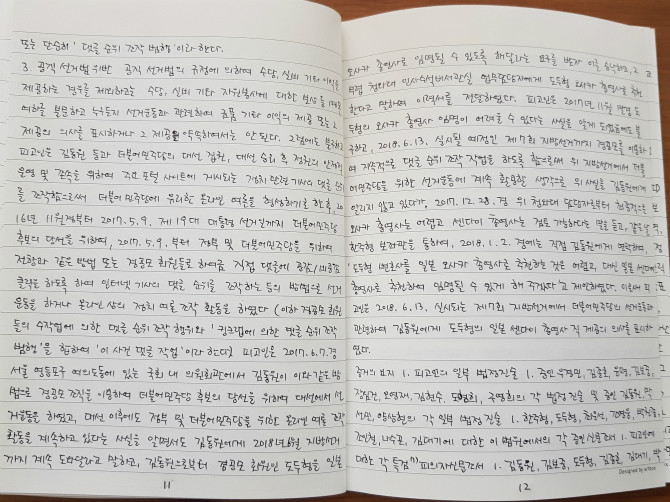 또는 단순히 '댓글 순위 조작 범행'이라 한다.
3. 공직 선거법 위반 공직 선거법의 규정에 의하여 수당, 실비 기타 이익을
제공하는 경우를 제외하고는 수당, 실비 기타 자원봉사에 대한 보상 등 명목
여하를 불문하고 누구든지 선거운동과 관련하여 금품 기타 이익의 제공 또는 그
제공의 의사를 표시하거나 그 제공을 약속하여서는 안 된다. 그럼에도 불구하고
피고인은 김동원 등과 더불어민주당의 대선 대선 승리 후 정권의 안정적
운영 및 존속을 위하여 주요 포털 사이트에 게시되는 정치 관련 기사의 댓글 순위
를 조작함으로써 더불어민주당에 유리한 온라인 여론을 형성하기로 한 후, 20
16년 11월경부터 2017.5.9. 제19대 대통령 선거일까지 더불어민주당
후보의 당선을 위하여, 2017.5.9.부터 정부 및 더불어민주당을 위하여
전항과 같은 방법 또는 경공모 회원들로 하여금 직접 댓글에 공감/비공감
클릭을 하도록 하여 인터넷 기사의 댓글 순위를 조작하는 등의 방법으로 선거
운동을 하거나 온라인 상의 정치 여론 조작 활동을 하였다 (이하 경공모 회원
들의 수작업에 의한 댓글 순위 조작 행위와 '킹크랩에 의한 댓글 순위 조작
범행'을 합하여 '이 사건 댓글 작업'이라 한다) 피고인은 2017.6.7.경
서울 영등포구 여의도동에 있는 국회 내 의원회관에서 김동원이 이와 같은 방
법으로 경공모 조직을 이용하여 더불어민주당 후보의 당선을 위하여 대선에서 선
거운동을 하였고, 대선 이후에도 정부 및 더불어민주당을 위한 온라인 여론 조작
활동을 계속하고 있다는 사실을 알면서도 김동원에게 2018년 6월 지방선거
까지 계속 도와달라고 말하고, 김동원으로부터 경공모 회원인 도두형을 일본
11
오사카 총영사로 임명될 수 있도록 해달라는 요구를 받자 이를 승낙하고, 그
청와대 인사수석비서관실 담당자에게 도두형 오사카 총영사 추천
한다고 말하며 이력서를 전달하였다. 피고인은 2017년 11월
도두형의 오사카 총영사 임명이 어려울 수 있다는 사실을 알게 되었음에도 불
구하고, 2018.6.13. 실시될 예정인 제7회 지방선거까지 경공모를 이용하
여 지속적으로 댓글 순위 조작 작업을 하도록 함으로써 위 지방선거에서 더불
어민주당을 위한 선거운동에 계속 활용할 생각으로 위 사실을 김동원에게
알리지 않고 있다가, 2017.12.28.경 위 청와대 담당자로부터
오사카 총영사는 어렵고 센다이 총영사는 검토 가능하다는 말을 듣고,
한주형 보좌관을 통하여, 2018.1.2.경에는 직접 김동원에게 연락하여,
'도두형 변호사를 일본 오사카 총영사로 추천하는 것은 어렵고, 대신 일본 센다이
총영사로 추천하여 임명될 수 있게 해 주겠다'고 제안하였다. 이로써 피
고인은 2018.6.13. 실시되는 제7회 지방선거에서 더불어민주당의 선거운동과
관련하여 김동원에게 도두형의 일본 센다이 총영사 직 제공의 의사를 표시하
였다.
증거의 요지 1. 피고인의 일부 법정진술 1. 증인
오영재, 김현수, 도두형, 의 각 법정 진술 및 증인 김동원, 박
선민, 양상현의 각 일부 법정 진술 1. 한주형, 도두형,
조민희, 나수곤, 김대기에 대한 이 법원에서의 각 증인신문조서 1. 피고인에
대한 각 특검 피의자신문조서 1. 김동원, 김보중, 도두형, 김종훈, 김대기, 박
12
Designed by artbox